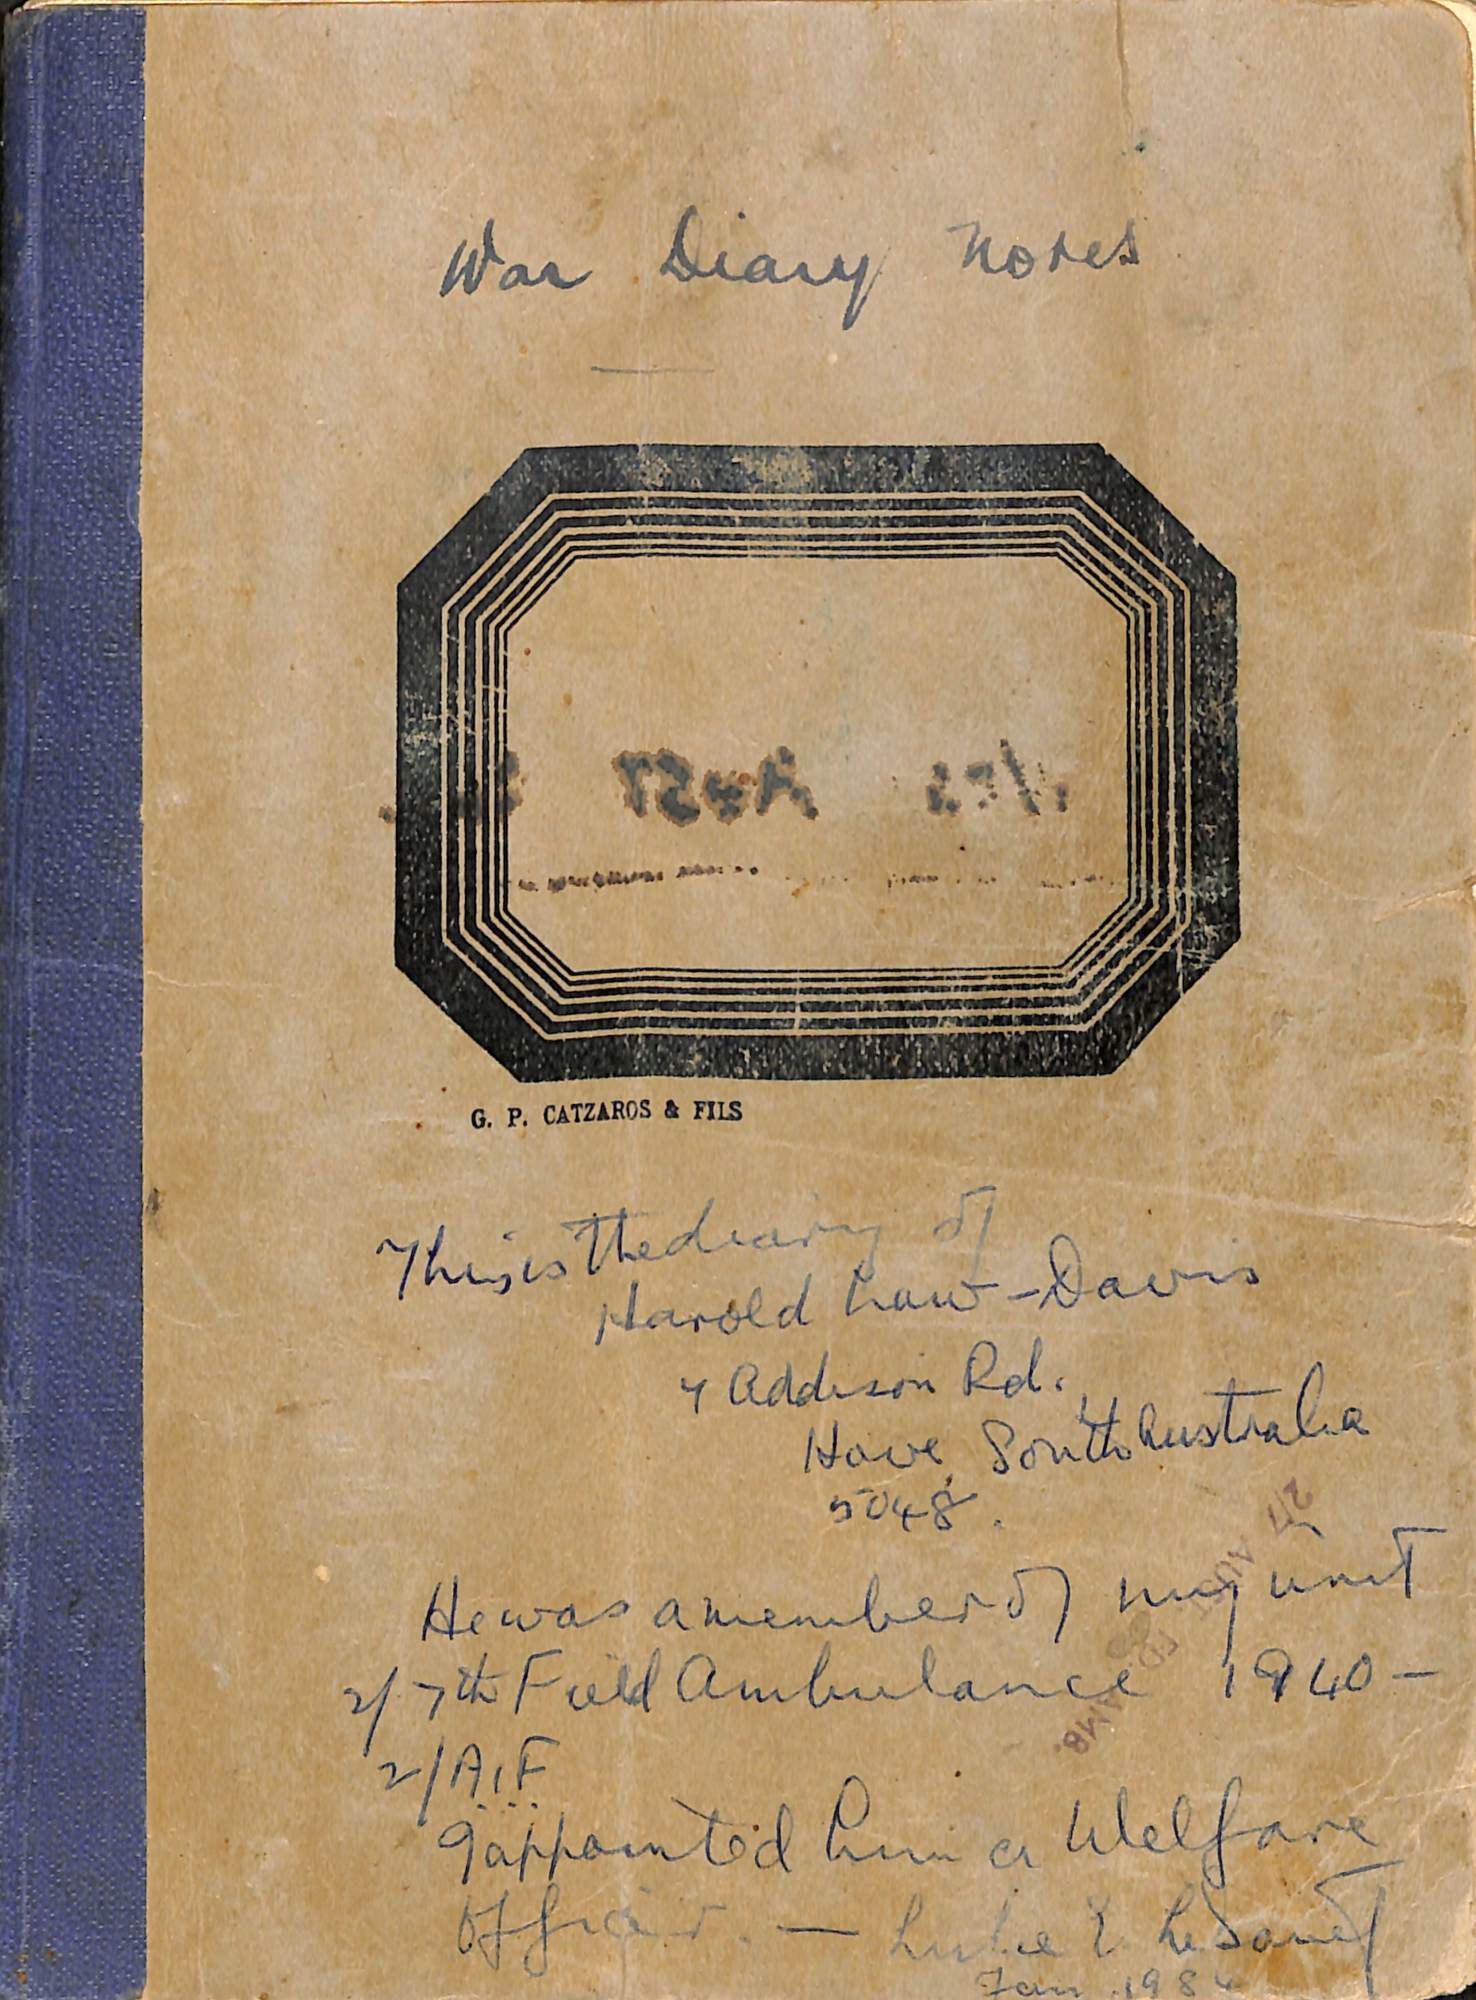 War Diary Notes
G. P. CATZAROS & FILS
This is the diary of
Harold Law-Davis
4 Addison Rd.
Hove, South Australia
5048.
He was a member of my unit
2/7th Field Ambulance 1940 —
2/A.I.F
I appointed him a Welfare
Officer. — Luke
Jan. 1984
2/7
AUST
FD.
AMB.